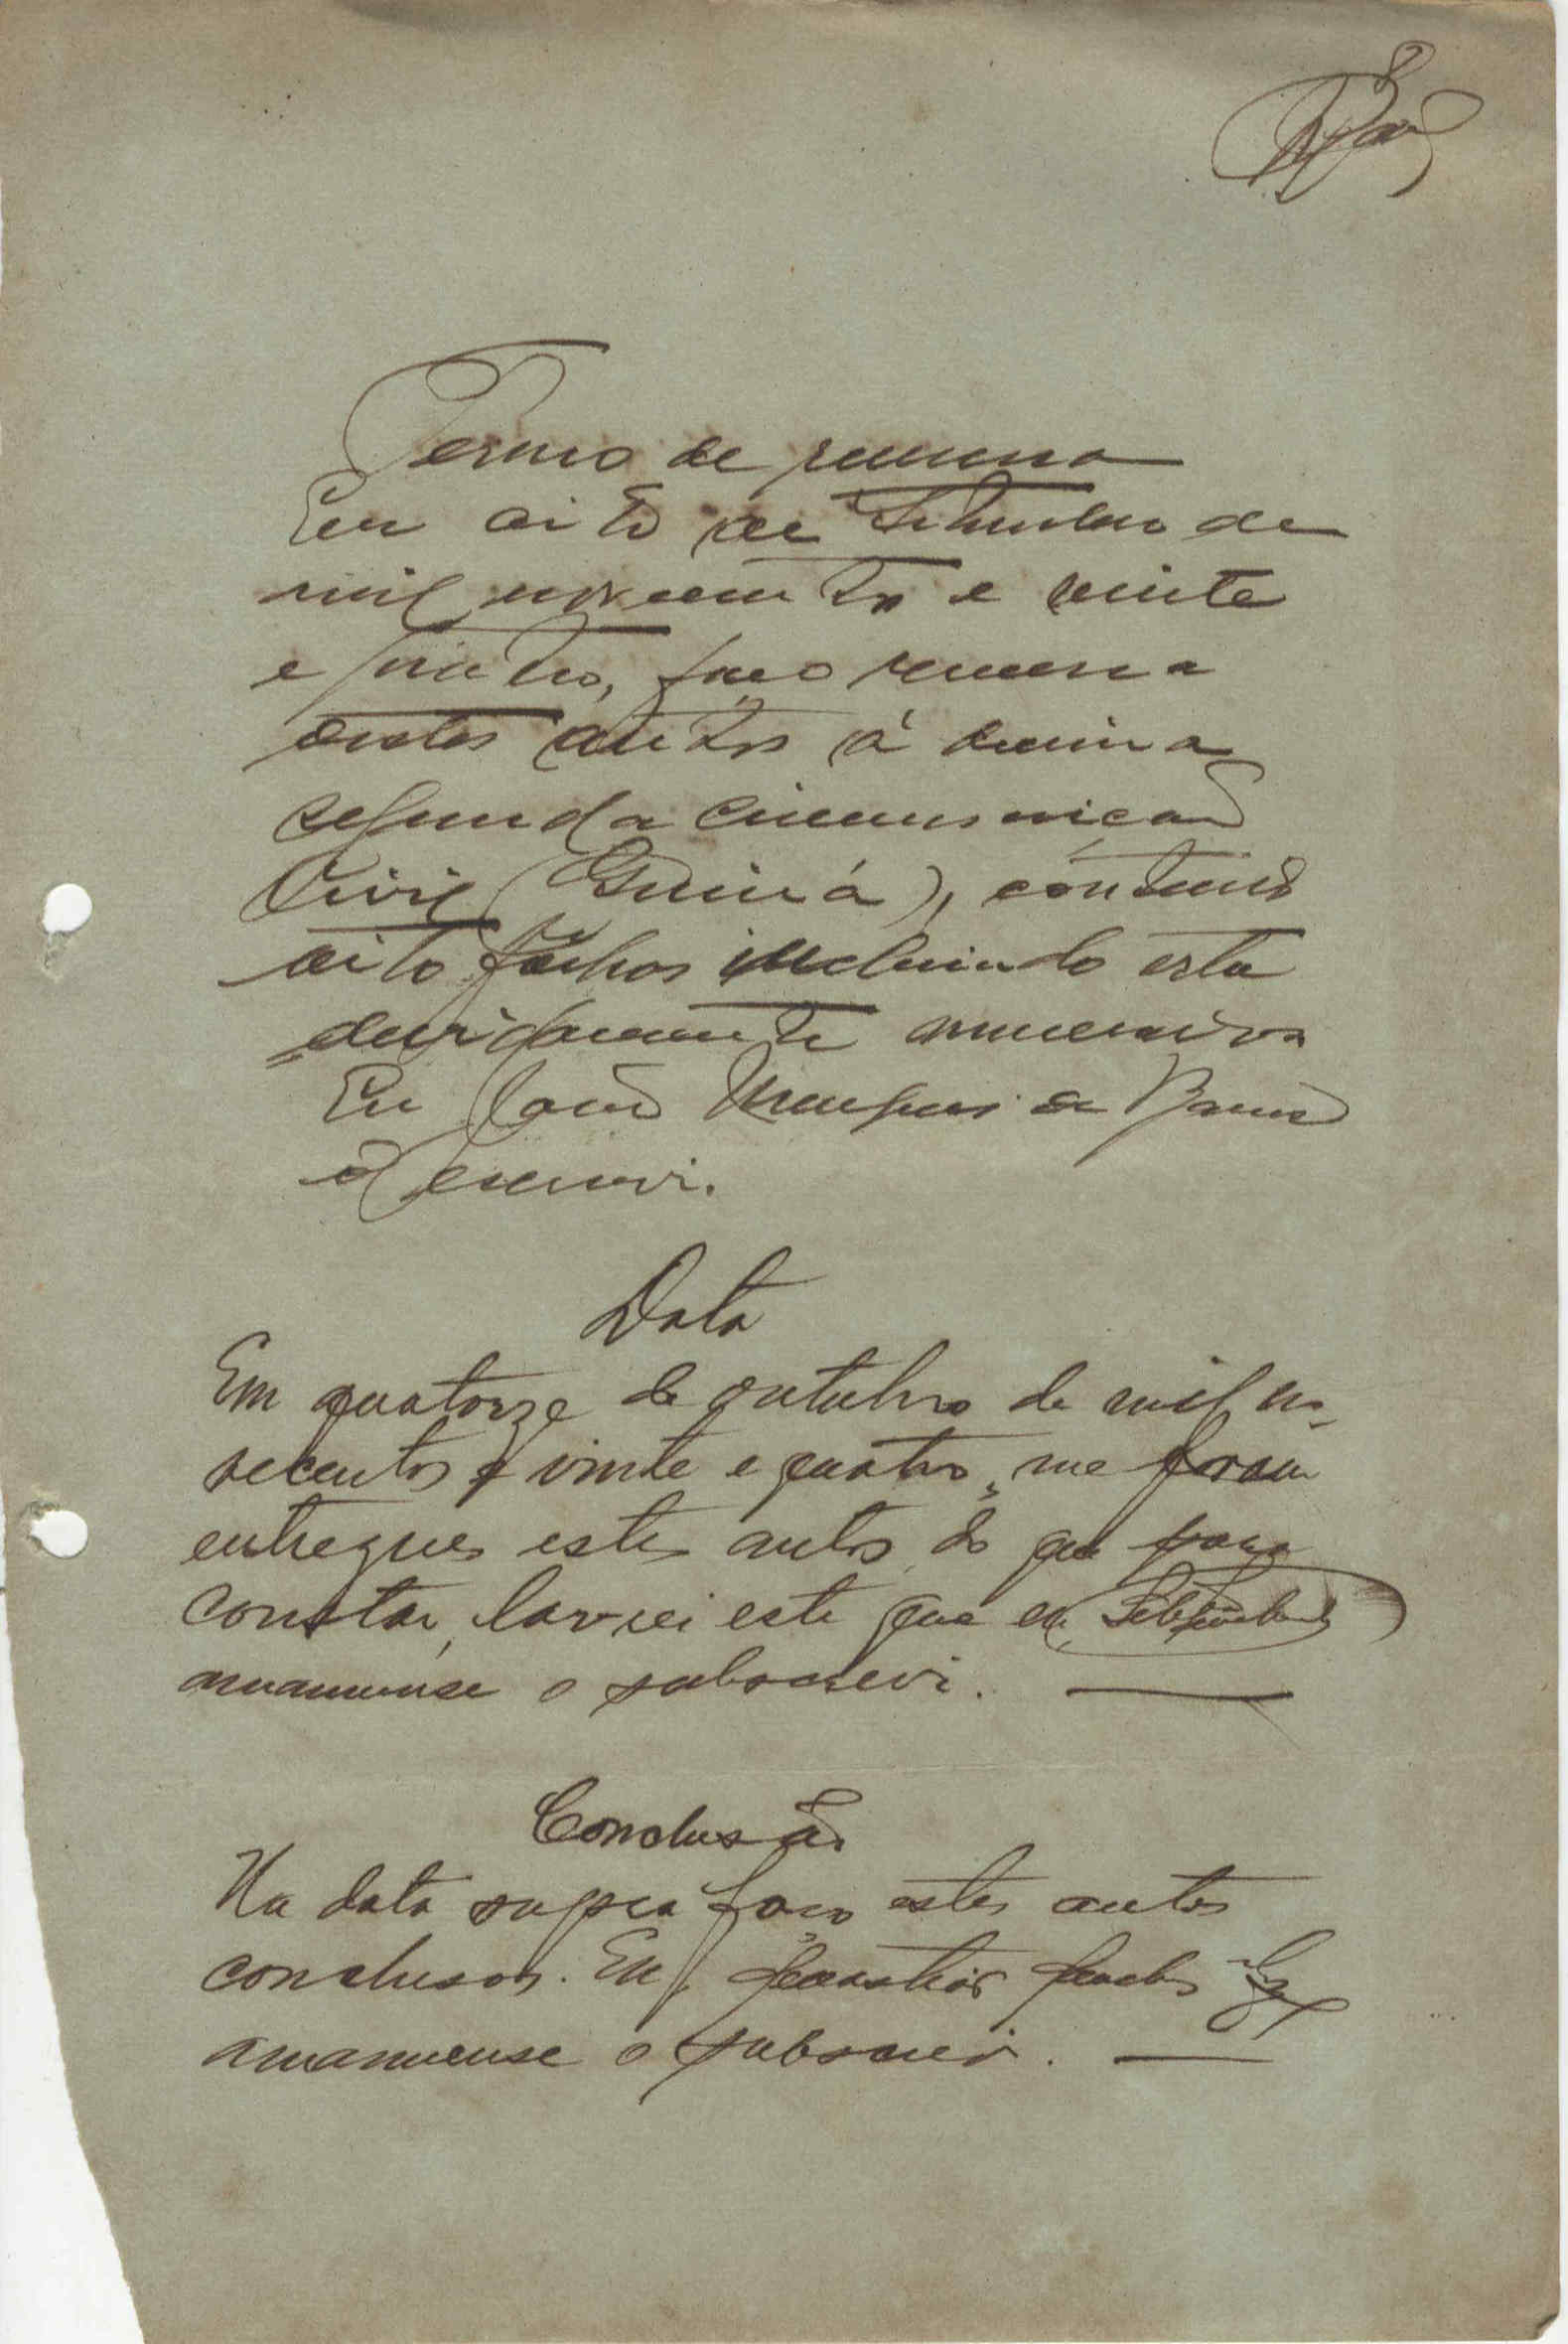 8
Termo de remessa
Em oito de Setembro de
mil novecentos e vinte
e quatro, faço remessa
destes autos á decima
segunda circumscrição
Civil (Guiná), contendo
oito folhas incluindo esta
devidamente numeradas
Eu João Marques de Barros
o escrevi.
Data
Em quatorze de outubro de mil no-
vecentos e vinte e quatro, me foram
entregues estes autos do que para
constar, lavrei este que eu,
amanuense o subscrevi.
Conclusão
Na data supra faço estes autos
conclusos. Eu,
amanuense o subscrevi.